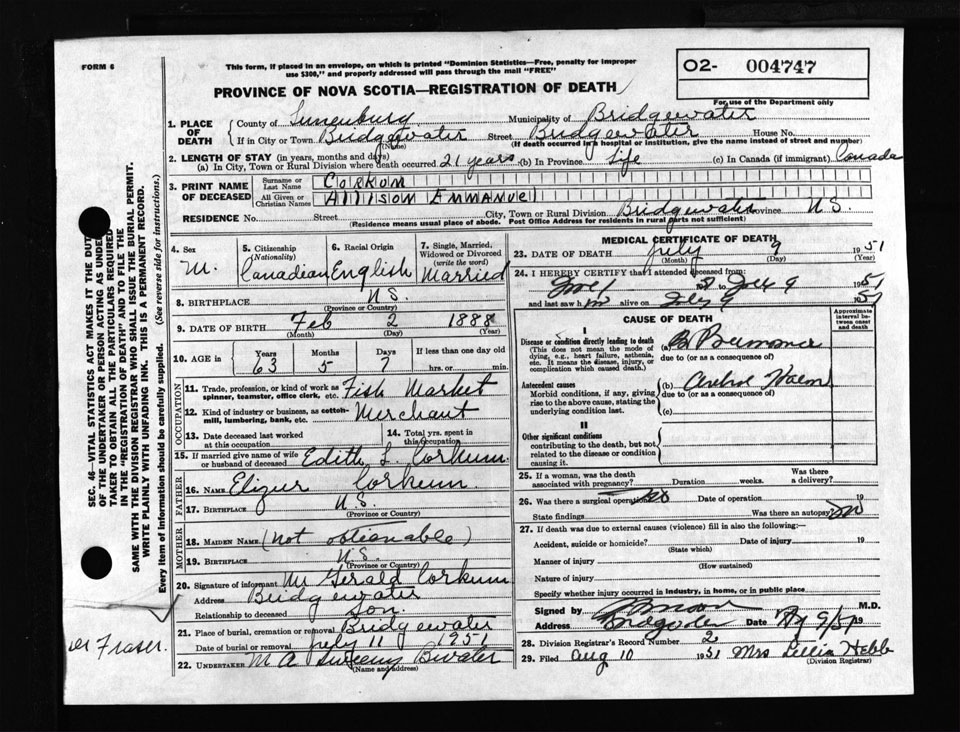 FORM 6
This form, if placed in an envelope, on which is printed "Dominion Statistics—Free, penalty for improper
use $300," and properly addressed will pass through the mail "FREE"
O2- 004747
For use of the Department only
PROVINCE OF NOVA SCOTIA—REGISTRATION OF DEATH
1. PLACE OF DEATH
County of Lunenburg Municipality of Bridgewater
If in City or Town Bridgewater Street Bridgewater House No.
(Name) (If death occurred in a hospital or institution, give the name instead of street and number)
2. LENGTH OF STAY (in years, months and days)
(a) In City, Town or Rural Division where death occurred 21 years (b) In Province Life (c) In Canada (if immigrant) Canada
3. PRINT NAME OF DECEASED
Surname or Last Name Corkum
All Given or Christian Names Allison Emmanuel
RESIDENCE No. Street City, Town or Rural Division Bridgewater Province N.S.
(Residence means usual place of abode. Post Office Address for residents in rural parts not sufficient)
4. Sex M.
5. Citizenship (Nationality) Canadian
6. Racial Origin English
7. Single, Married, Widowed or Divorced (write the word) Married
8. BIRTHPLACE N.S.
(Province or Country)
9. DATE OF BIRTH Feb 2 1888
(Month) (Day) (Year)
10. AGE in Years 63 Months 5 Days 7 If less than one day old
hrs. or min.
OCCUPATION
11. Trade, profession, or kind of work as spinner, teamster, office clerk, etc. Fish Market
12. Kind of industry or business, as cotton-mill, lumbering, bank, etc. Merchant
13. Date deceased last worked at this occupation
14. Total yrs. spent in this occupation
15. If married give name of wife or husband of deceased Edith L. Corkum
FATHER
16. NAME Elizur Corkum
17. BIRTHPLACE N.S.
(Province or Country)
MOTHER
18. MAIDEN NAME (not obtianable)
19. BIRTHPLACE N.S.
(Province or Country)
20. Signature of informant M Gerald Corkum
Address Bridgewater
Relationship to deceased Son.
21. Place of burial, cremation or removal Bridgewater
Date of burial or removal July 11 1951
22. UNDERTAKER M A Sweeny Bwater
(Name and address)
MEDICAL CERTIFICATE OF DEATH
23. DATE OF DEATH July 9 1951
(Month) (Day) (Year)
24. I HEREBY CERTIFY that I attended deceased from:
to July 9 1951
and last saw h m alive on July 9 1951
CAUSE OF DEATH
Approximate interval between onset and death
I
Disease or condition directly leading to death (a)
(This does not mean the mode of dying, e.g., heart failure, asthenia, etc. It means the disease, injury, or complication which caused death.)
due to (or as a consequence of)
Antecedent causes (b)
Morbid conditions, if any, giving rise to the above cause, stating the underlying condition last.
due to (or as a consequence of)
(c)
II
Other significant conditions
contributing to the death, but not related to the disease or condition causing it.
25. If a woman, was the death associated with pregnancy? Duration weeks. Was there a delivery?
26. Was there a surgical operation? Date of operation 19
State findings Was there an autopsy?
27. If death was due to external causes (violence) fill in also the following:—
Accident, suicide or homicide? Date of injury 19
(State which)
Manner of injury
(How sustained)
Nature of injury
Specify whether injury occurred in industry, in home, or in public place
Signed by M.D.
Address Bridgewater Date 19
28. Division Registrar's Record Number 2
29. Filed Aug 10 1951 Mrs Lellia Hebb
(Division Registrar)
SEC. 46—VITAL STATISTICS ACT MAKES IT THE DUTY
OF THE UNDERTAKER OR PERSON ACTING AS UNDER-
TAKER TO OBTAIN ALL THE PARTICULARS REQUIRED
IN THE "REGISTRATION OF DEATH" AND TO FILE THE
SAME WITH THE DIVISION REGISTRAR WHO SHALL ISSUE THE BURIAL PERMIT.
WRITE PLAINLY WITH UNFADING INK. THIS IS A PERMANENT RECORD.
Every item of information should be carefully supplied. (See reverse side for instructions.)
Fraser.